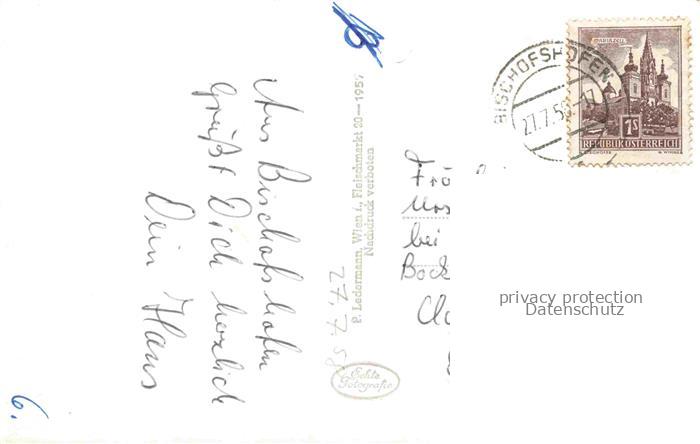 Aus Bischofshofen
grüßt Dich herzlich
Dein Hans
6.
P. Ledermann, Wien I., Fleischmarkt 20—1957
Nachdruck verboten
27. 7. 58
Echte
Fotografie
BISCHOFSHOFEN
27.7.58
MARIAZELL
1S
REPUBLIK ÖSTERREICH
bei
Bock
privacy protection
Datenschutz